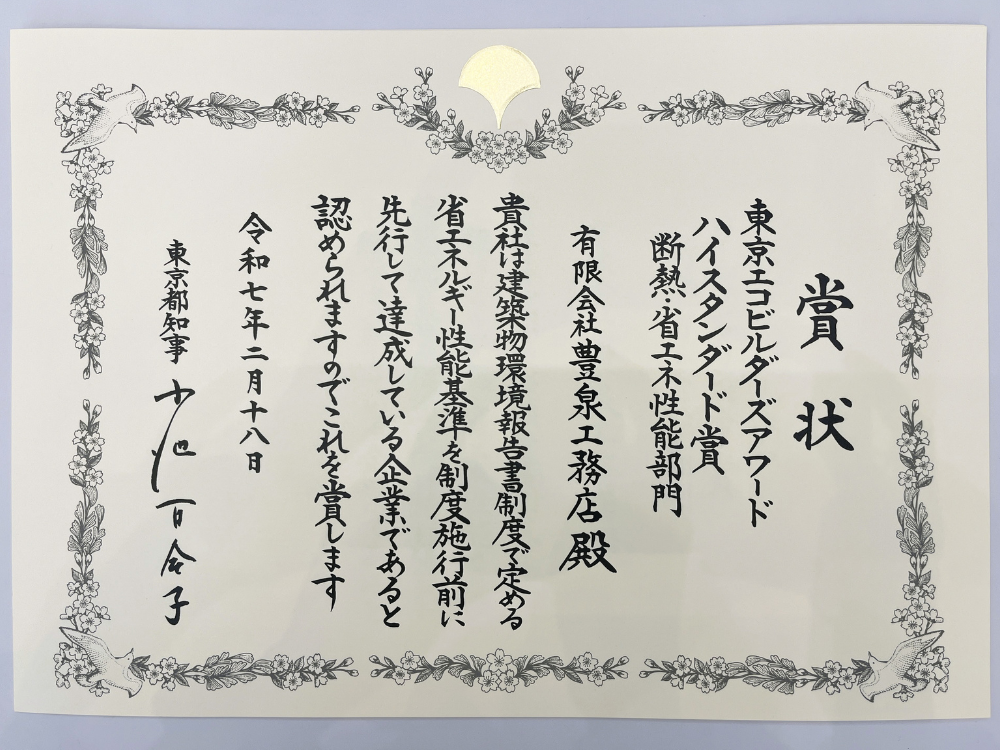 賞状
東京エコビルダーズアワード
ハイスタンダード賞
断熱・省エネ性能部門
有限会社豊泉工務店殿
貴社は建築物環境報告書制度で定める
省エネルギー性能基準を制度施行前に
先行して達成している企業であると
認められますのでこれを賞します
令和七年二月十八日
東京都知事 小池百合子